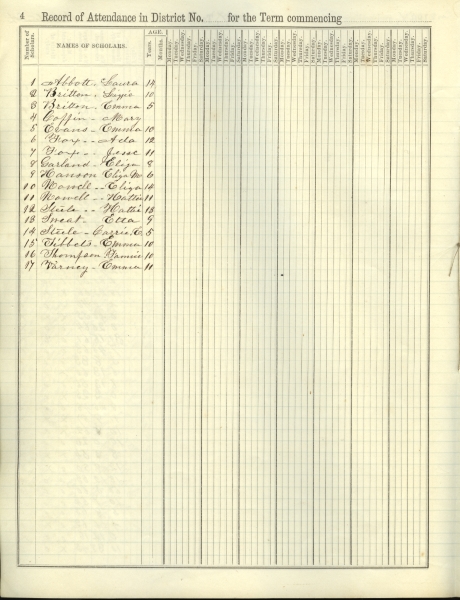 4 Record of Attendance in District No. for the Term commencing
Number of Scholars. NAMES OF SCHOLARS. AGE. Years. Months. Monday. Tuesday. Wednesday. Thursday. Friday. Saturday.
1 Abbott - Laura 14
2 Britton - Lizzie 10
3 Britton - Emma 5
4 Coffin - Mary
5 Evans - Emma 10
6 Fox - - Ada 12
7 Fox - - Jesse 11
8 Garland - Eliza 8
9 Hanson Eliza M 6
10 Nowell - - Eliza 14
11 Nowell - - Hattie 11
12 Steele - - Hattie 13
13 Sweat - Etta 9
14 Steele - Carrie E. 5
15 Tibbets - Emma 10
16 Thompson Fannie 10
17 Varney - Emma 11